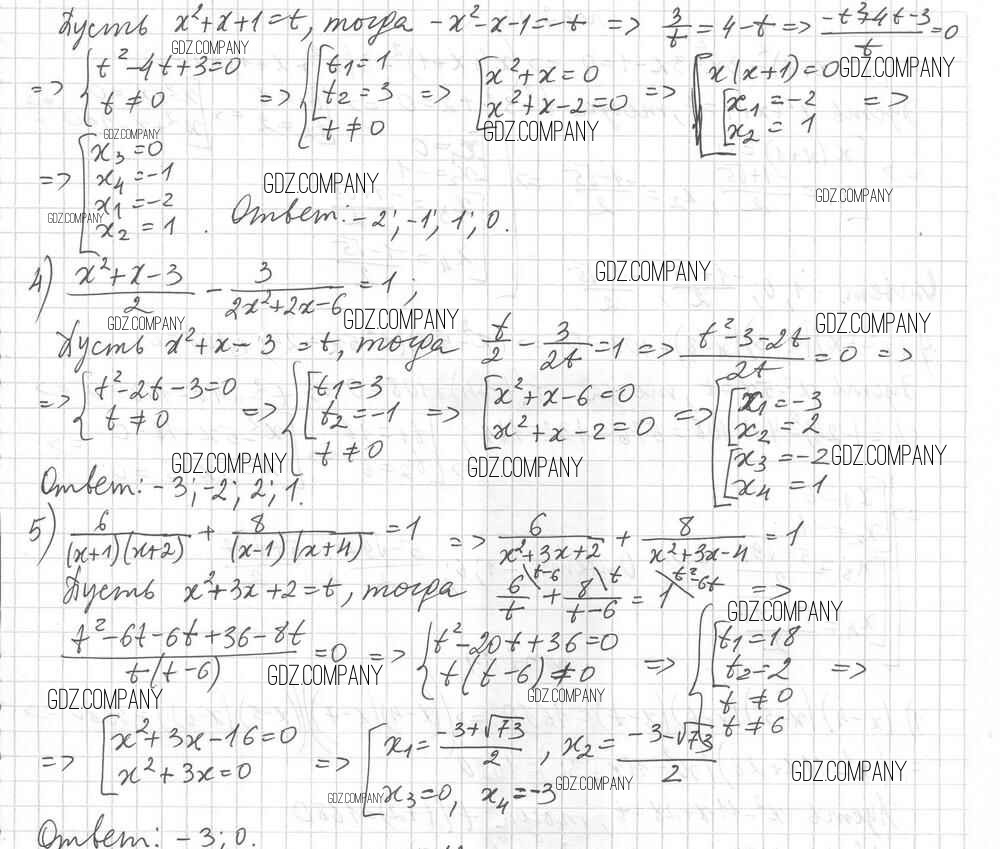 Пусть x²+x+1=t, тогда -x²-x-1=-t => 3/t = 4-t => (-t²+4t-3)/t = 0
GDZ.COMPANY
=> { t²-4t+3=0; t≠0 => { [ t₁=1; t₂=3; t≠0 => [ x²+x=0; x²+x-2=0 => [ x(x+1)=0; [ x₁=-2; x₂=1 =>
GDZ.COMPANY
GDZ.COMPANY
GDZ.COMPANY
=> [ x₃=0; x₄=-1; x₁=-2; x₂=1. Ответ: -2; -1; 1; 0.
GDZ.COMPANY
GDZ.COMPANY
GDZ.COMPANY
4) (x²+x-3)/2 - 3/(2x²+2x-6) = 1;
GDZ.COMPANY
GDZ.COMPANY
GDZ.COMPANY
GDZ.COMPANY
Пусть x²+x-3=t, тогда t/2 - 3/2t = 1 => (t²-3-2t)/2t = 0 =>
=> { t²-2t-3=0; t≠0 => { [ t₁=3; t₂=-1; t≠0 => [ x²+x-6=0; x²+x-2=0 => [ [ x₁=-3; x₂=2; [ x₃=-2; x₄=1
GDZ.COMPANY
GDZ.COMPANY
GDZ.COMPANY
Ответ: -3; -2; 2; 1.
5) 6/((x+1)(x+2)) + 8/((x-1)(x+4)) = 1 => 6/(x²+3x+2) + 8/(x²+3x-4) = 1
Пусть x²+3x+2=t, тогда 6\t-6/t + 8\t/(t-6) = 1\t²-6t =>
GDZ.COMPANY
(t²-6t-6t+36-8t)/(t(t-6)) = 0 => { t²-20t+36=0; t(t-6)≠0 => { [ t₁=18; t₂=2; t≠0; t≠6 =>
GDZ.COMPANY
GDZ.COMPANY
GDZ.COMPANY
=> [ x²+3x-16=0; x²+3x=0 => [ x₁=(-3+√73)/2, x₂=(-3-√73)/2; x₃=0, x₄=-3
GDZ.COMPANY
GDZ.COMPANY
GDZ.COMPANY
Ответ: -3; 0.